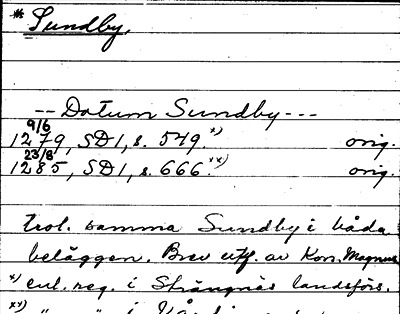 * Sundby.
-- Datum Sundby ---
9/6
1279, SD 1, s. 549. *) orig.
23/8
1285, SD 1, s. 666. **) orig.
trol. samma Sundby i båda
beläggen. Brev utf. av Kon. Magnus
*) enl. reg. i Strängnäs landsförs.
**) " " i